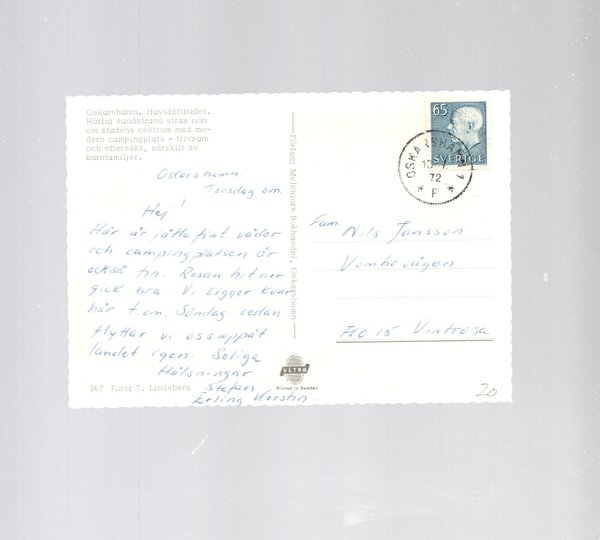 Oskarshamn, Havslättbadet.
Härlig sandstrand strax norr
om stadens centrum med mo-
dern campingplats - trivsam
och eftersökt, särskilt av
barnfamiljer.
Oskarshamn.
Torsdag em.
Hej!
Här är jättefint väder
och campingplatsen är
också fin. Resan hit ner
gick bra. Vi ligger kvar
här t.om. Söndag sedan
flyttar vi oss uppåt
landet igen. Soliga
Hälsningar
Stefan
Erling Kerstin.
167 Foto: T. Lindeberg
Förlag: Melchiors Bokhandel, Oskarshamn
ULTRA
Printed in Sweden
65
SVERIGE
OSKARSHAMN 1
72
* F *
Fam.
Nils Jansson
Vombovägen
710 15 Vintrosa
20